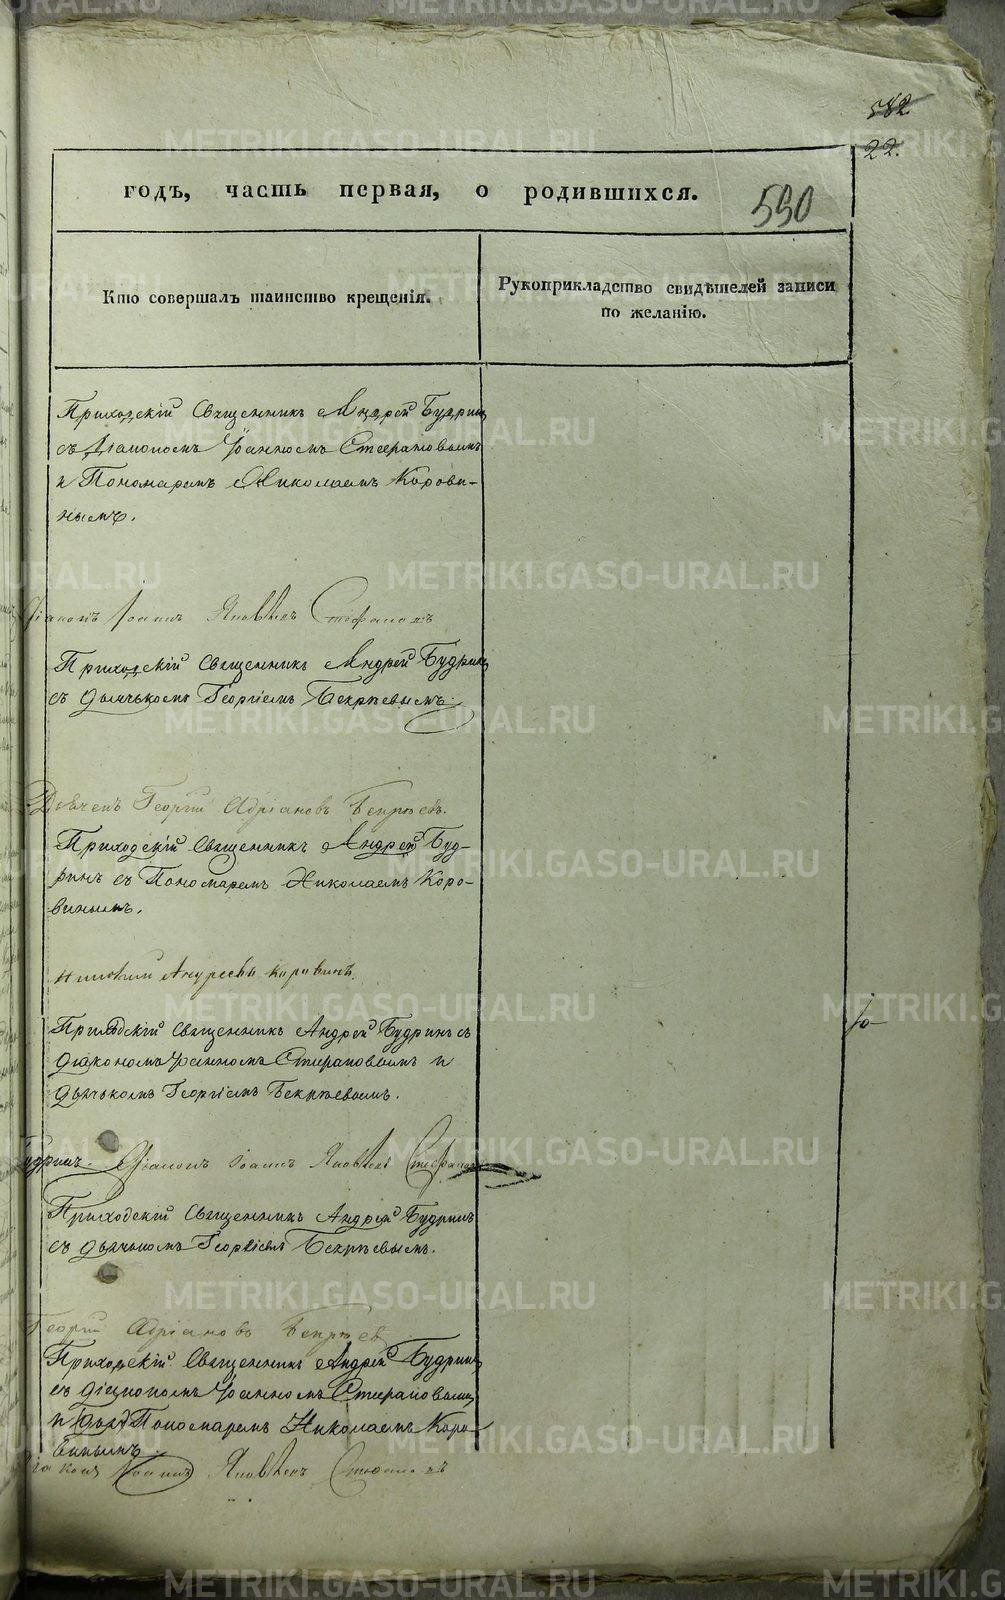 582
22.
годъ, часть первая, о родившихся.
550
Кто совершалъ таинство крещенія.
Рукоприкладство свидѣтелей записи
по желанію.
Приходскій Священникъ Андрей Будринъ
съ Діакономъ Іоанномъ Стефановымъ
и Пономаремъ Николаемъ Корови-
нымъ.
Діаконъ Іоаннъ Яковлевъ Стефановъ
Приходскій Священникъ Андрей Будринъ
съ дьячькомъ Георгіемъ Бекрѣевымъ.
Георгій Адріановъ Бекрѣевъ.
Приходскій Священникъ Андрей Буд-
ринъ съ Пономаремъ Николаемъ Коро-
винымъ.
Николай Андреевъ Коровинъ.
Приходскій Священникъ Андрей Будринъ съ
діакономъ Іоанномъ Стефановымъ и
дьячькомъ Георгіемъ Бекрѣевымъ.
Будринъ. Діаконъ Іоаннъ Яковлевъ Стефановъ
Приходскій Священникъ Андрей Будринъ
съ дьячькомъ Георгіемъ Бекрѣевымъ.
Георгій Адріановъ Бекрѣевъ
Приходскій Священникъ Андрей Будринъ
съ діакономъ Іоанномъ Стефановымъ
и Пономаремъ Николаемъ Коро-
винымъ.
Діаконъ Іоаннъ Яковлевъ Стефановъ
METRIKI.GASO-URAL.RU